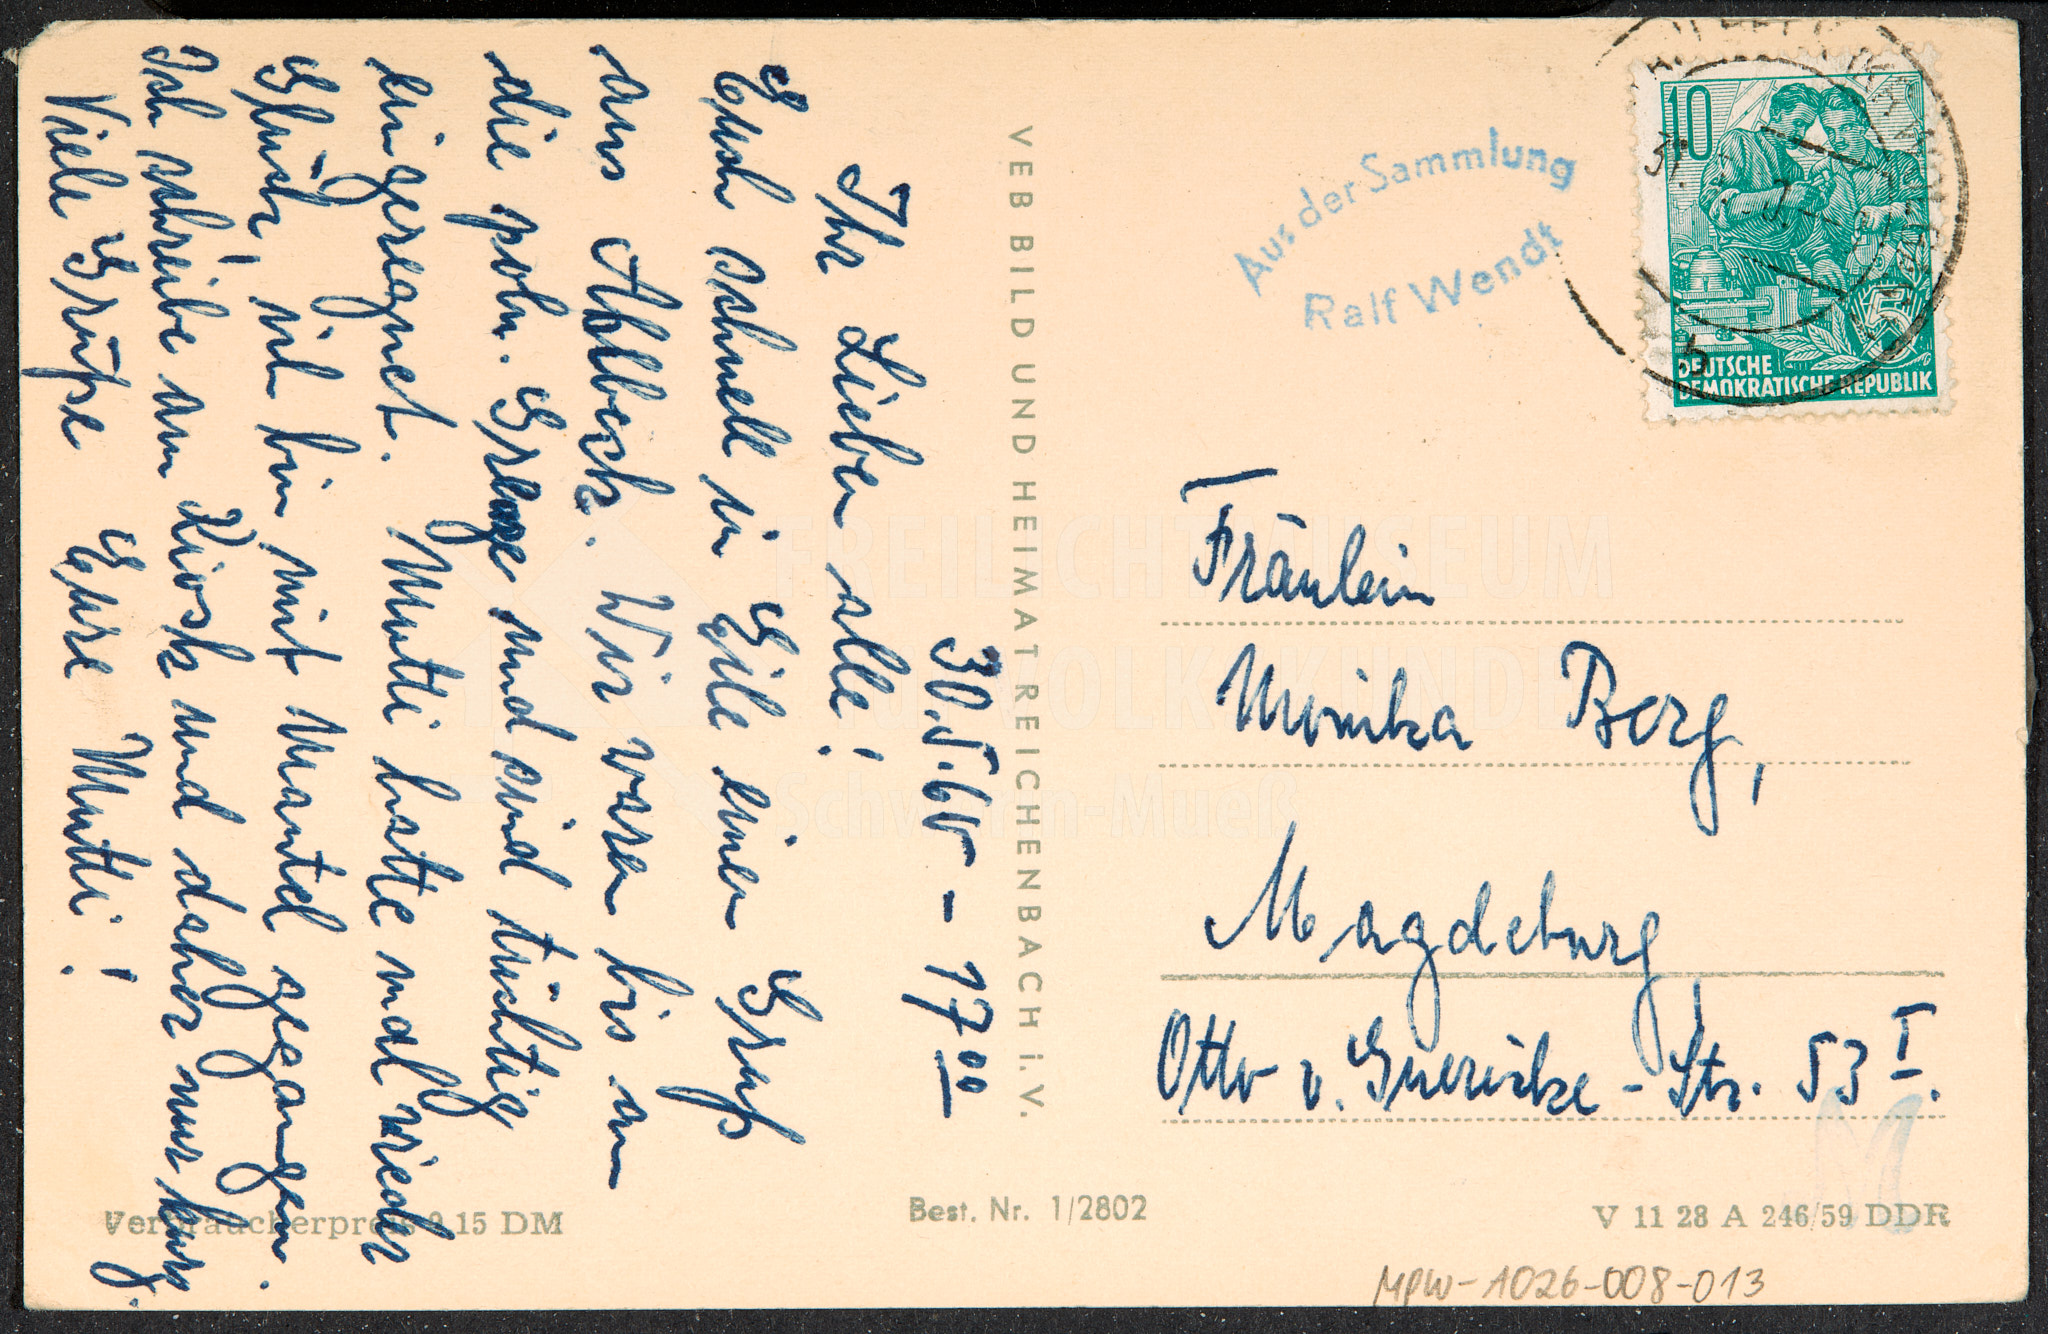 30.5.60 - 17⁰⁰
Ihr Lieben alle!
Euch schnell in Eile einen Gruß
aus Ahlbeck. Wir waren bis an
die poln. Grenze und sind tüchtig
eingeregnet. Mutti hatte mal wieder
Glück, ich bin mit Mantel gegangen.
Ich schreibe am Kiosk und daher nur kurz.
Viele Grüße Eure Mutti!
VEB BILD UND HEIMAT REICHENBACH i. V.
Aus der Sammlung
Ralf Wendt
10
DEUTSCHE
DEMOKRATISCHE REPUBLIK
Fräulein
Monika Berg,
Magdeburg,
Otto v. Guericke-Str. 53 I.
FREILICHTMUSEUM
FÜR VOLKSKUNDE
Schwerin-Mueß
Verbraucherpreis 0,15 DM
Best. Nr. 1/2802
V 11 28 A 246/59 DDR
MPW-1026-008-013